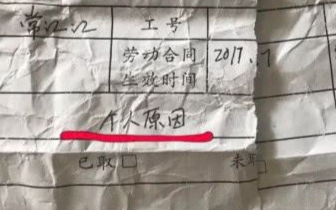 常江江 工号
劳动合同 2017.7
生效时间
个人原因
已取□ 未取□